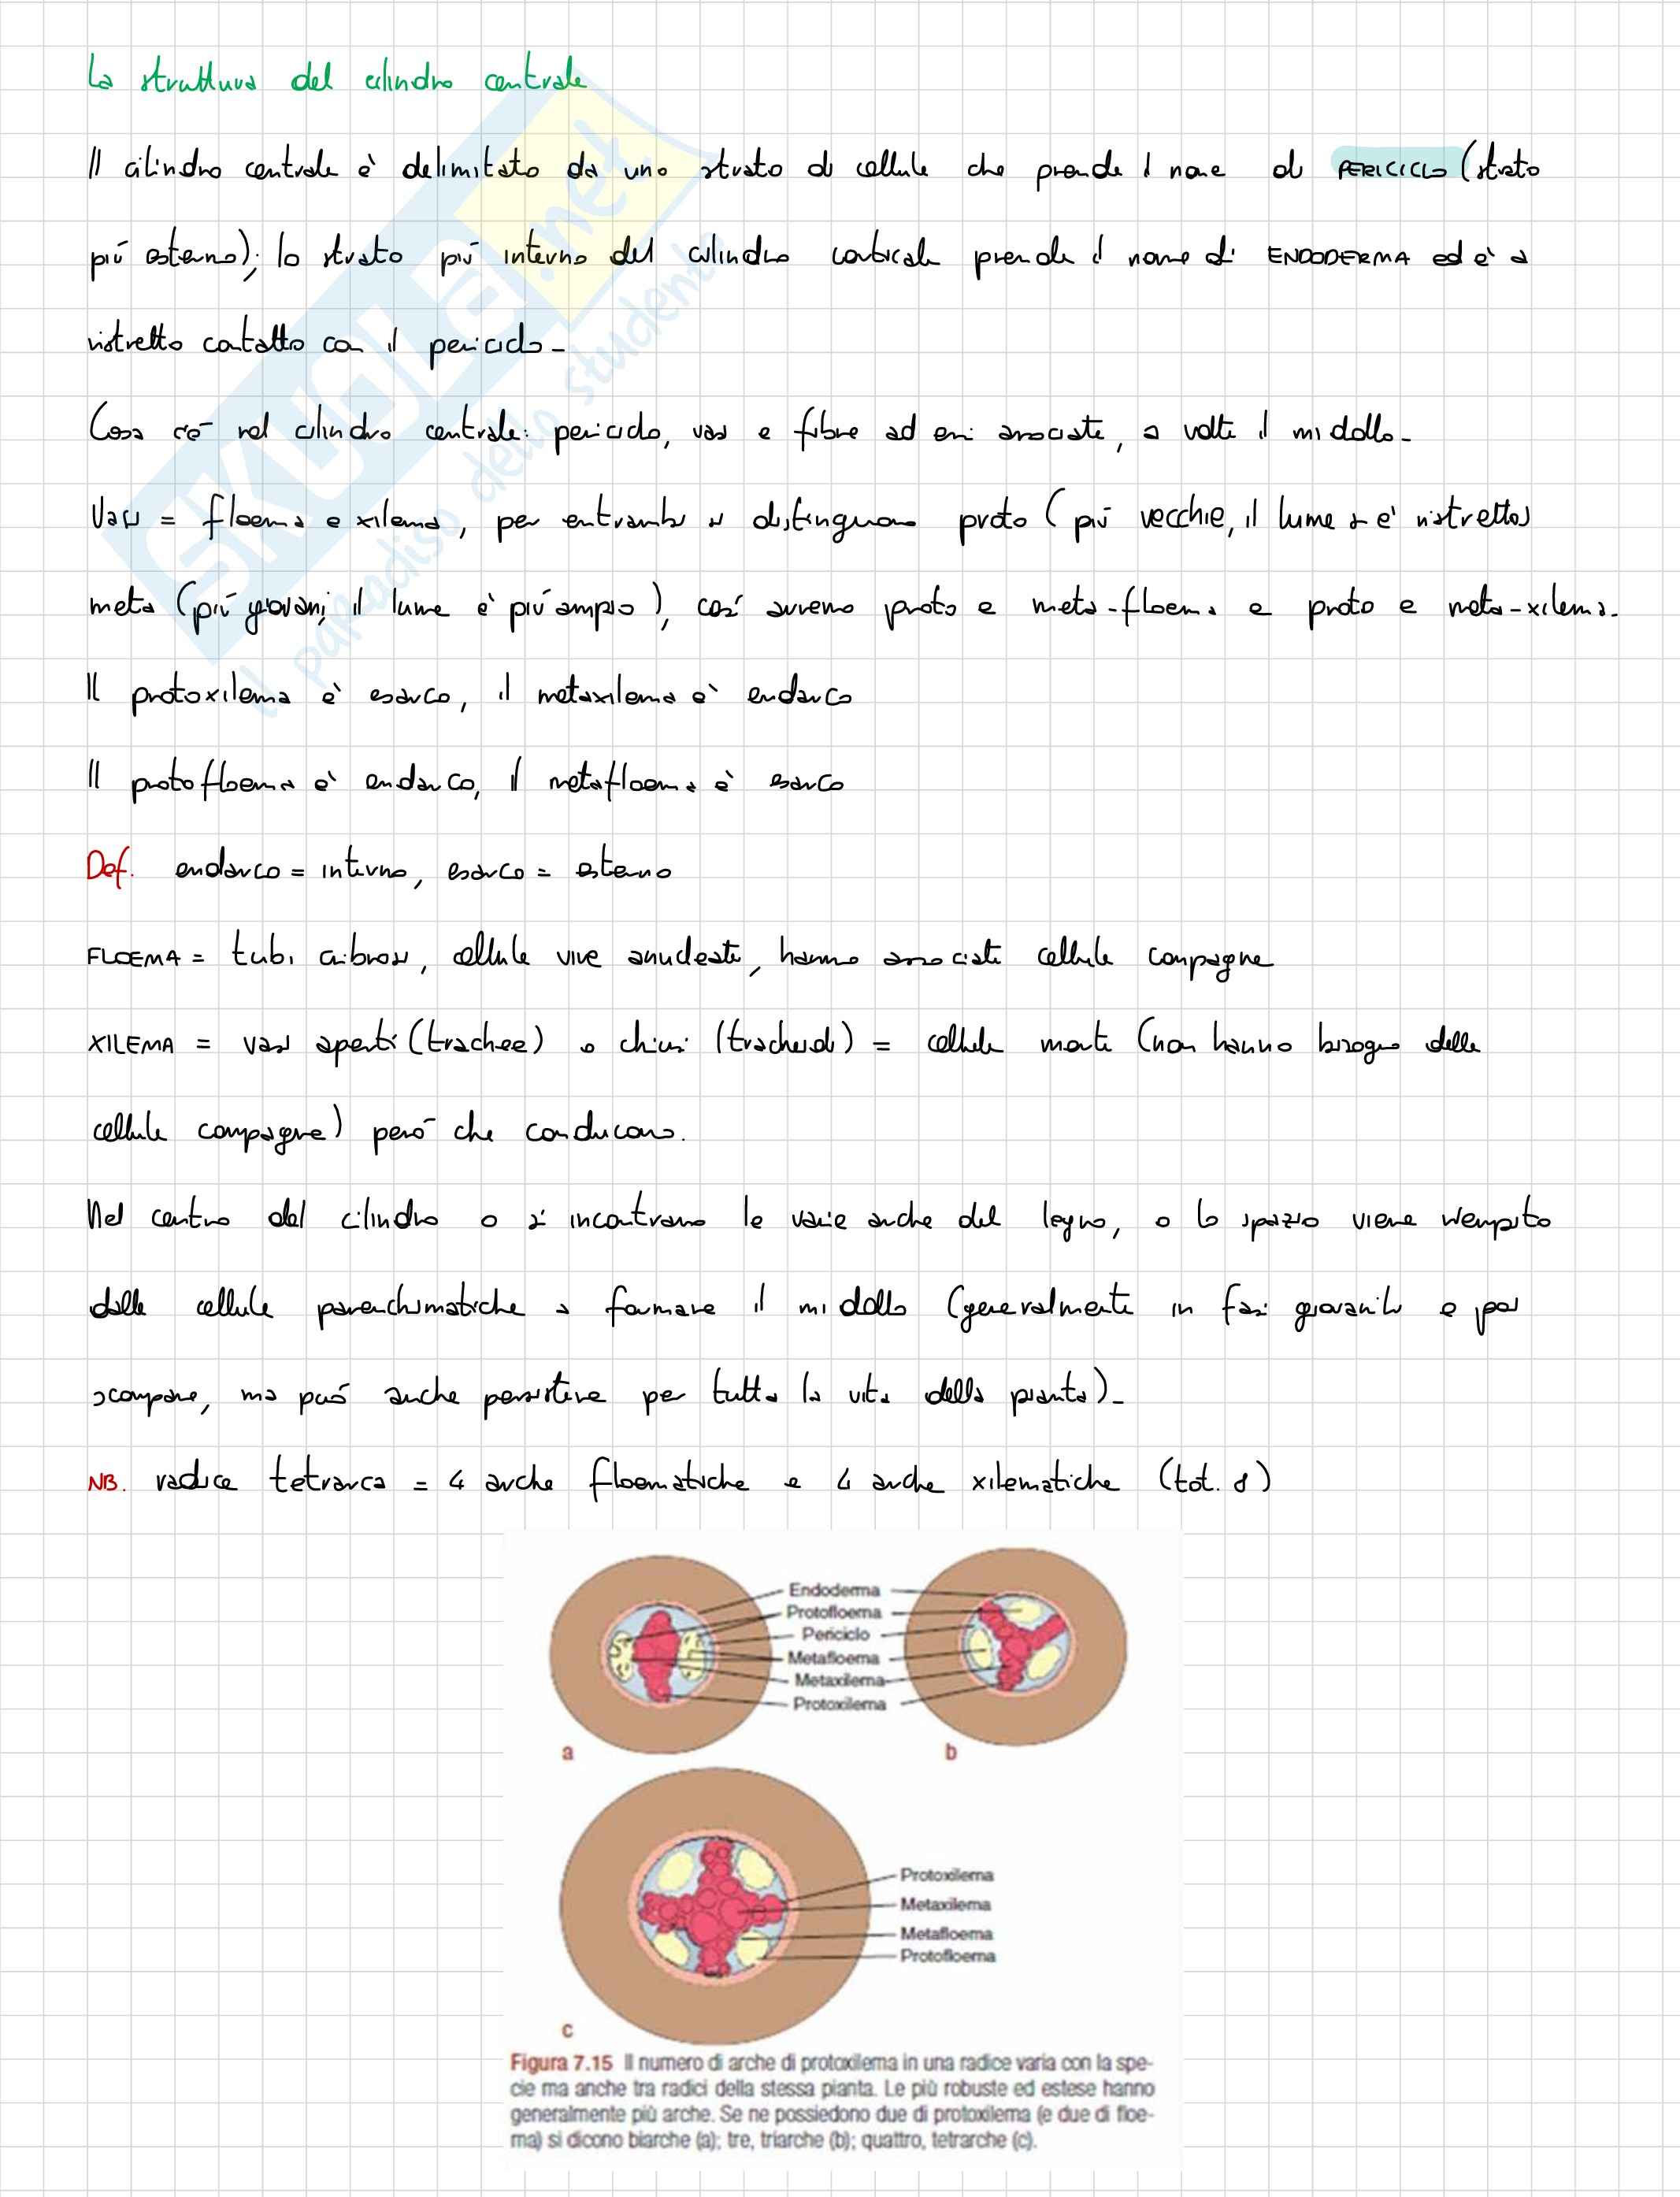 La struttura del cilindro centrale
Il cilindro centrale è delimitato da uno strato di cellule che prende il nome di PERICICLO (strato
più esterno); lo strato più interno del cilindro corticale prende il nome di ENDODERMA ed è a
ristretto contatto con il periciclo-
Cosa c'è nel cilindro centrale: periciclo, vasi e fibre ad essi associate, a volte il midollo-
Vasi = floema e xilema, per entrambi si distinguono proto (più vecchie, il lume si è ristretto)
meta (più giovani, il lume è più ampio), così avremo proto e meta-floema e proto e meta-xilema.
Il protoxilema è esarco, il metaxilema è endarco
Il protofloema è endarco, il metafloema è esarco
Def. endarco = interno, esarco = esterno
FLOEMA = tubi cribrosi, cellule vive anucleate, hanno associate cellule compagne
XILEMA = vasi aperti (trachee) o chiusi (tracheidi) = cellule morte (non hanno bisogno delle
cellule compagne) però che conducono.
Nel centro del cilindro o si incontrano le varie arche del legno, o lo spazio viene riempito
dalle cellule parenchimatiche a formare il midollo (generalmente in fasi giovanili e poi
scompare, ma può anche persistere per tutta la vita della pianta)-
NB. radice tetrarca = 4 arche floematiche e 4 arche xilematiche (tot. 8)
Endoderma
Protofloema
Periciclo
Metafloema
Metaxilema
Protoxilema
a
b
Protoxilema
Metaxilema
Metafloema
Protofloema
c
Figura 7.15 Il numero di arche di protoxilema in una radice varia con la spe-
cie ma anche tra radici della stessa pianta. Le più robuste ed estese hanno
generalmente più arche. Se ne possiedono due di protoxilema (e due di floe-
ma) si dicono biarche (a); tre, triarche (b); quattro, tetrarche (c).
SKUOLA.net
il paradiso dello studente